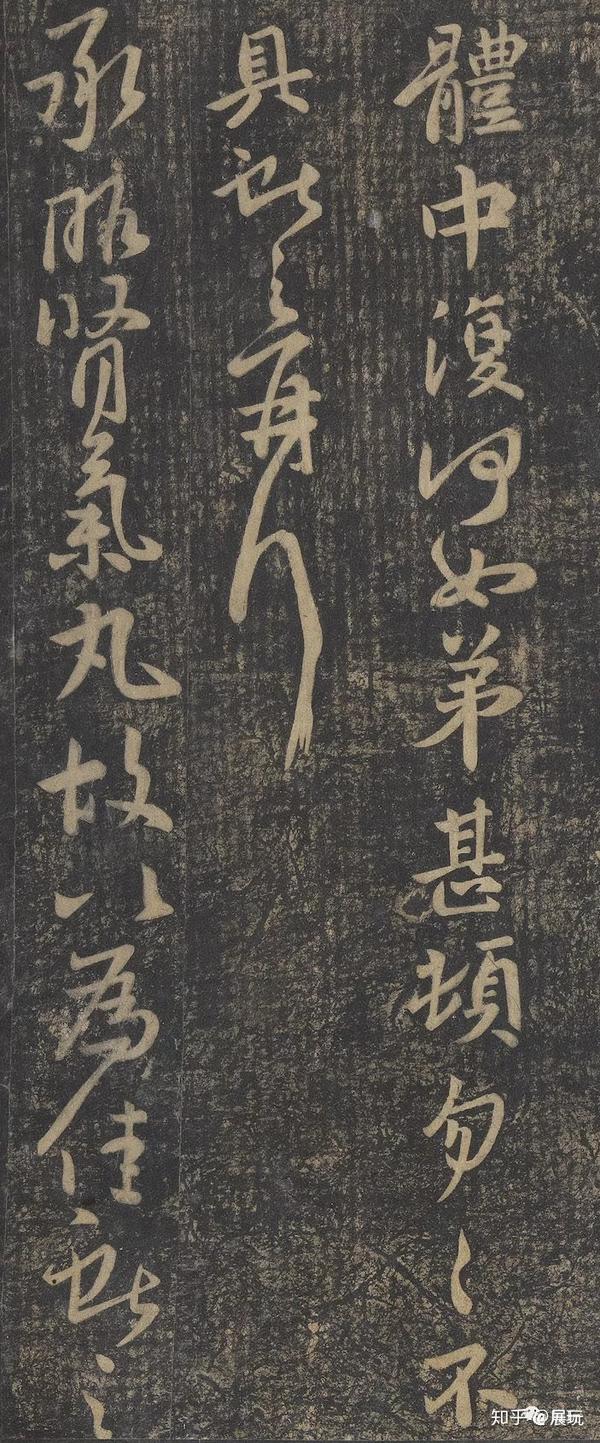 體中復何如弟甚頓勿〻不
具獻之再拜
承服腎氣丸故以為佳獻之
知乎 @展玩